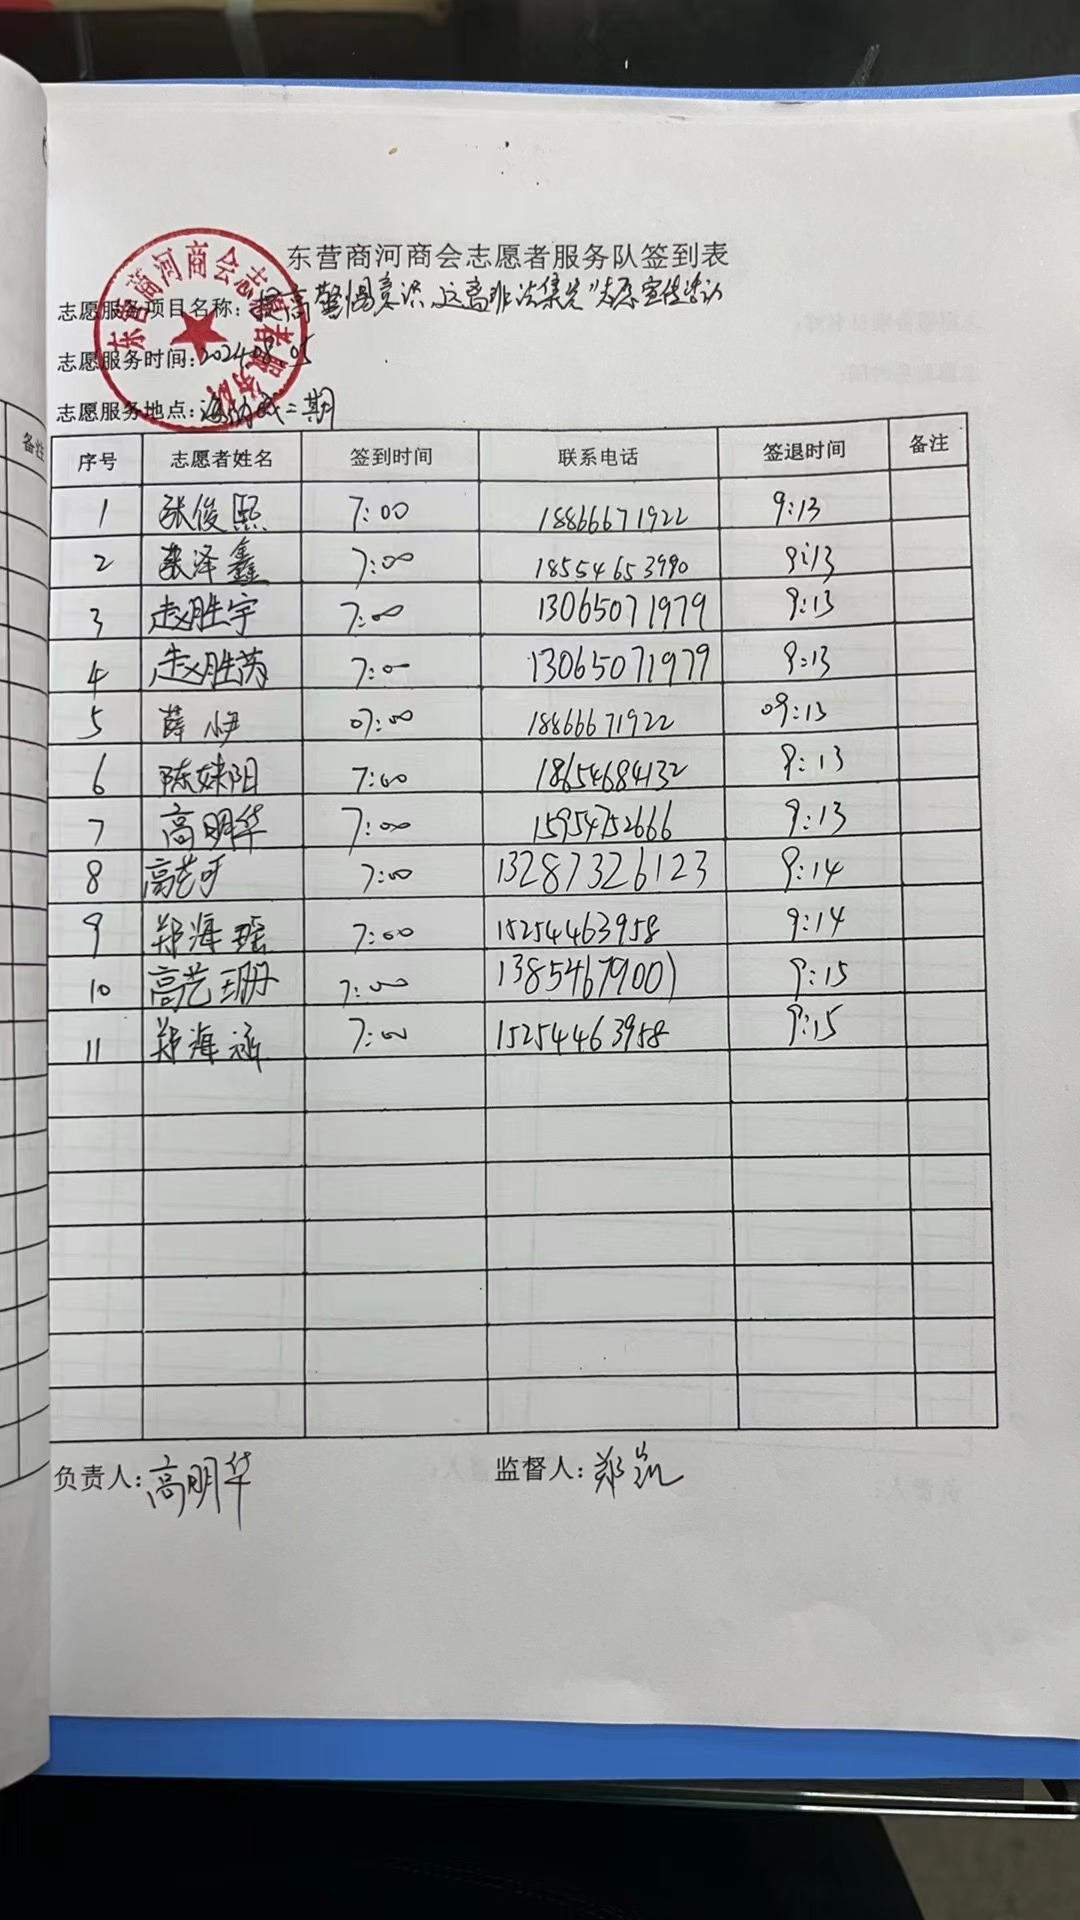 东营商河商会志愿者服务队签到表
东营商河商会志愿者服务队
志愿服务项目名称：提高警惕意识，远离非法集资"志愿宣传活动
志愿服务时间：2024.08.05
志愿服务地点：二期
备注
序号 志愿者姓名 签到时间 联系电话 签退时间 备注
1 张俊熙 7:00 18866671922 9:13
2 张泽鑫 7:00 18554653990 9:13
3 赵胜宇 7:00 13065071979 9:13
4 赵胜芮 7:00 13065071979 9:13
5 薛 伊 07:00 18866671922 09:13
6 陈妹阳 7:00 18654684132 9:13
7 高明华 7:00 15954752666 9:13
8 高艺可 7:00 13287326123 9:14
9 郑海瑶 7:00 15254463958 9:14
10 高艺珊 7:00 13854679001 9:15
11 郑海涵 7:00 15254463958 9:15
负责人：高明华 监督人：郑凯